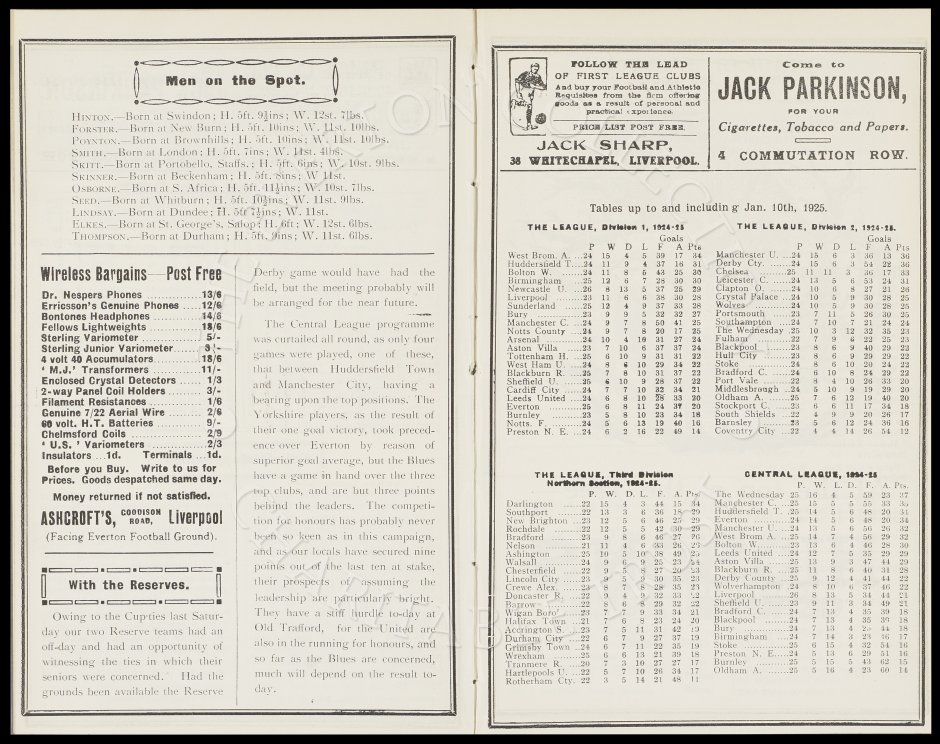 Men on the Spot.
HINTON.—Born at Swindon; H. 5ft. 9½ins; W. 12st. 7lbs.
FORSTER.—Born at New Burn; H. 5ft. 10ins; W. 11st. 10lbs.
POYNTON.—Born at Brownhills; H. 5ft. 10ins; W. 11st. 10lbs.
SMITH.—Born at London; H. 5ft. 7ins; W. 11st. 4lbs.
SKITT.—Born at Portobello, Staffs.; H. 5ft. 6ins; W. 10st. 9lbs.
SKINNER.—Born at Beckenham; H. 5ft. 8ins; W 11st.
OSBORNE.—Born at S. Africa; H. 5ft. 11½ins; W. 10st. 7lbs.
SEED.—Born at Whitburn; H. 5ft. 10½ins; W. 11st. 9lbs.
LINDSAY.—Born at Dundee; H. 5ft 7½ins; W. 11st.
ELKES.—Born at St. George's, Salop; H. 6ft; W. 12st. 6lbs.
THOMPSON.—Born at Durham; H. 5ft. 9ins; W. 11st. 6lbs.
Wireless Bargains—Post Free
Dr. Nespers Phones 13/6
Erricsson's Genuine Phones 12/6
Bontones Headphones 14/6
Fellows Lightweights 18/6
Sterling Variometer 5/-
Sterling Junior Variometer
4 volt 40 Accumulators 18/6
'M.J.' Transformers 11/-
Enclosed Crystal Detectors 1/3
2-way Panel Coil Holders 3/-
Filament Resistances 1/6
Genuine 7/22 Aerial Wire 2/6
60 volt. H.T. Batteries 9/-
Chelmsford Coils 2/9
'U.S.' Variometers 2/3
Insulators ...1d. Terminals ...1d.
Before you Buy. Write to us for
Prices. Goods despatched same day.
Money returned if not satisfied.
ASHCROFT'S, GOODISON ROAD, Liverpool
(Facing Everton Football Ground).
With the Reserves.
Owing to the Cup-ties last Satur-
day our two Reserve teams had an
off-day and had an opportunity of
witnessing the ties in which their
seniors were concerned. Had the
grounds been available the Reserve
Derby game would have had the
field, but the meeting probably will
be arranged for the near future.
The Central League programme
was curtailed all round, as only four
games were played, one of these,
that between Huddersfield Town
and Manchester City, having a
bearing upon the top positions. The
Yorkshire players, as the result of
their one goal victory, took preced-
ence over Everton by reason of
superior goal average, but the Blues
have a game in hand over the three
top clubs, and are but three points
behind the leaders. The competi-
tion for honours has probably never
been so keen as in this campaign,
and as our locals have secured nine
points out of the last ten at stake,
their prospects of assuming the
leadership are particularly bright.
They have a stiff hurdle to-day at
Old Trafford, for the United are
also in the running for honours, and
so far as the Blues are concerned,
much will depend on the result to-
day.
FOLLOW THE LEAD
OF FIRST LEAGUE CLUBS
And buy your Football and Athletic
Requisites from the firm offering
goods as a result of personal and
practical experience.
PRICE LIST POST FREE.
JACK SHARP,
38 WHITECHAPEL, LIVERPOOL.
Come to
JACK PARKINSON,
FOR YOUR
Cigarettes, Tobacco and Papers.
4 COMMUTATION ROW.
Tables up to and including Jan. 10th, 1925.
THE LEAGUE, Division 1, 1924-25
Goals
P W D L F A Pts
West Brom. A. ...24 15 4 5 39 17 34
Huddersfield T....24 11 9 4 37 16 31
Bolton W. ...24 11 8 5 43 25 30
Birmingham ...25 12 6 7 28 30 30
Newcastle U. ...26 8 13 5 37 25 29
Liverpool ...23 11 6 6 38 30 28
Sunderland ...25 12 4 9 37 33 28
Bury ...23 9 9 5 32 32 27
Manchester C. ...24 9 7 8 50 41 25
Notts County ...24 9 7 8 20 17 25
Arsenal ...24 10 4 10 31 27 24
Aston Villa ...23 7 10 6 37 37 24
Tottenham H. ...25 6 10 9 31 31 22
West Ham U. ...24 8 6 10 29 34 22
Blackburn R. ...25 7 8 10 31 37 22
Sheffield U. ...25 6 10 9 28 37 22
Cardiff City ...24 7 7 10 32 34 21
Leeds United ...24 6 8 10 28 33 20
Everton ...25 6 8 11 24 37 20
Burnley ...23 5 8 10 23 34 18
Notts. F. ...24 5 6 13 19 40 16
Preston N. E. ...24 6 2 16 22 49 14
THE LEAGUE, Division 2, 1924-25.
Goals
P W D L F A Pts
Manchester U. ...24 15 6 3 36 13 36
Derby Cty. ...24 15 6 3 54 22 36
Chelsea ...25 11 11 3 36 17 33
Leicester C. ...24 13 5 6 53 24 31
Clapton O. ...24 10 6 8 27 21 26
Crystal Palace ...24 10 5 9 30 28 25
Wolves ...24 10 5 9 30 28 25
Portsmouth ...23 7 11 5 26 30 25
Southampton ...24 7 10 7 21 24 24
The Wednesday ...25 10 3 12 32 35 23
Fulham ...22 7 9 6 22 25 23
Blackpool ...23 8 6 9 40 29 23
Hull City ...23 8 6 9 29 29 22
Stoke ...24 8 6 10 20 24 22
Bradford C. ...24 6 10 8 24 29 22
Port Vale ...22 8 4 10 26 33 20
Middlesbrough ...24 5 10 9 19 29 20
Oldham A. ...25 7 6 12 19 40 20
Stockport C. ...23 6 6 11 17 34 18
South Shields ...22 4 9 9 20 26 17
Barnsley ...23 5 6 12 24 36 16
Coventry City ...22 4 4 14 26 54 12
THE LEAGUE, Third Division
Northern Section, 1924-25.
P. W. D. L. F. A. Pts
Darlington ...22 15 4 3 44 15 34
Southport ...22 13 3 6 36 18 29
New Brighton ...23 12 5 6 46 25 29
Rochdale ...22 12 5 5 42 30 29
Bradford ...23 9 8 6 46 27 26
Nelson ...21 11 4 6 33 26 26
Ashington ...25 10 5 10 38 49 25
Walsall ...24 9 6 9 25 23 24
Chesterfield ...22 9 5 8 27 20 23
Lincoln City ...23 9 5 9 30 35 23
Crewe Alex ...23 8 7 8 28 35 23
Doncaster R. ...22 9 4 9 32 33 22
Barrow ...22 8 6 8 29 32 22
Wigan Boro' ...23 7 7 9 33 34 21
Halifax Town ...21 7 6 8 23 24 20
Accrington S. ...23 7 5 11 31 42 19
Durham City ...22 6 7 9 27 37 19
Grimsby Town ...24 6 7 11 22 35 19
Wrexham ...25 6 6 13 21 39 18
Tranmere R. ...20 7 3 10 27 27 17
Hartlepools U. ...22 5 7 10 26 34 17
Rotherham Cty. 22 3 5 14 21 48 11
CENTRAL LEAGUE, 1924-25
P. W. L. D. F. A. Pts
The Wednesday 25 16 4 5 59 23 37
Manchester C. ...25 15 5 5 55 33 35
Huddersfield T. ...25 14 5 6 48 20 31
Everton ...24 14 5 6 48 20 34
Manchester U. ...24 13 5 6 56 26 32
West Brom A. ...25 14 7 4 56 29 32
Bolton W. ...23 13 6 4 46 28 30
Leeds United ...24 12 7 5 35 29 29
Aston Villa ...25 13 9 3 47 44 29
Blackburn R. ...25 11 8 6 40 31 28
Derby County ...25 9 12 4 41 44 22
Wolverhampton ...24 8 10 6 37 46 22
Liverpool ...26 8 13 5 34 44 21
Sheffield U. ...23 9 11 3 34 49 21
Bradford C. ...24 7 13 4 35 39 18
Blackpool ...24 7 13 4 35 39 18
Bury ...24 7 13 4 25 44 18
Birmingham ...24 7 14 3 23 46 17
Stoke ...25 6 15 4 32 54 16
Preston N. E. ...24 5 13 6 29 51 16
Burnley ...25 5 15 5 43 62 15
Oldham A. ...25 5 16 4 23 60 14